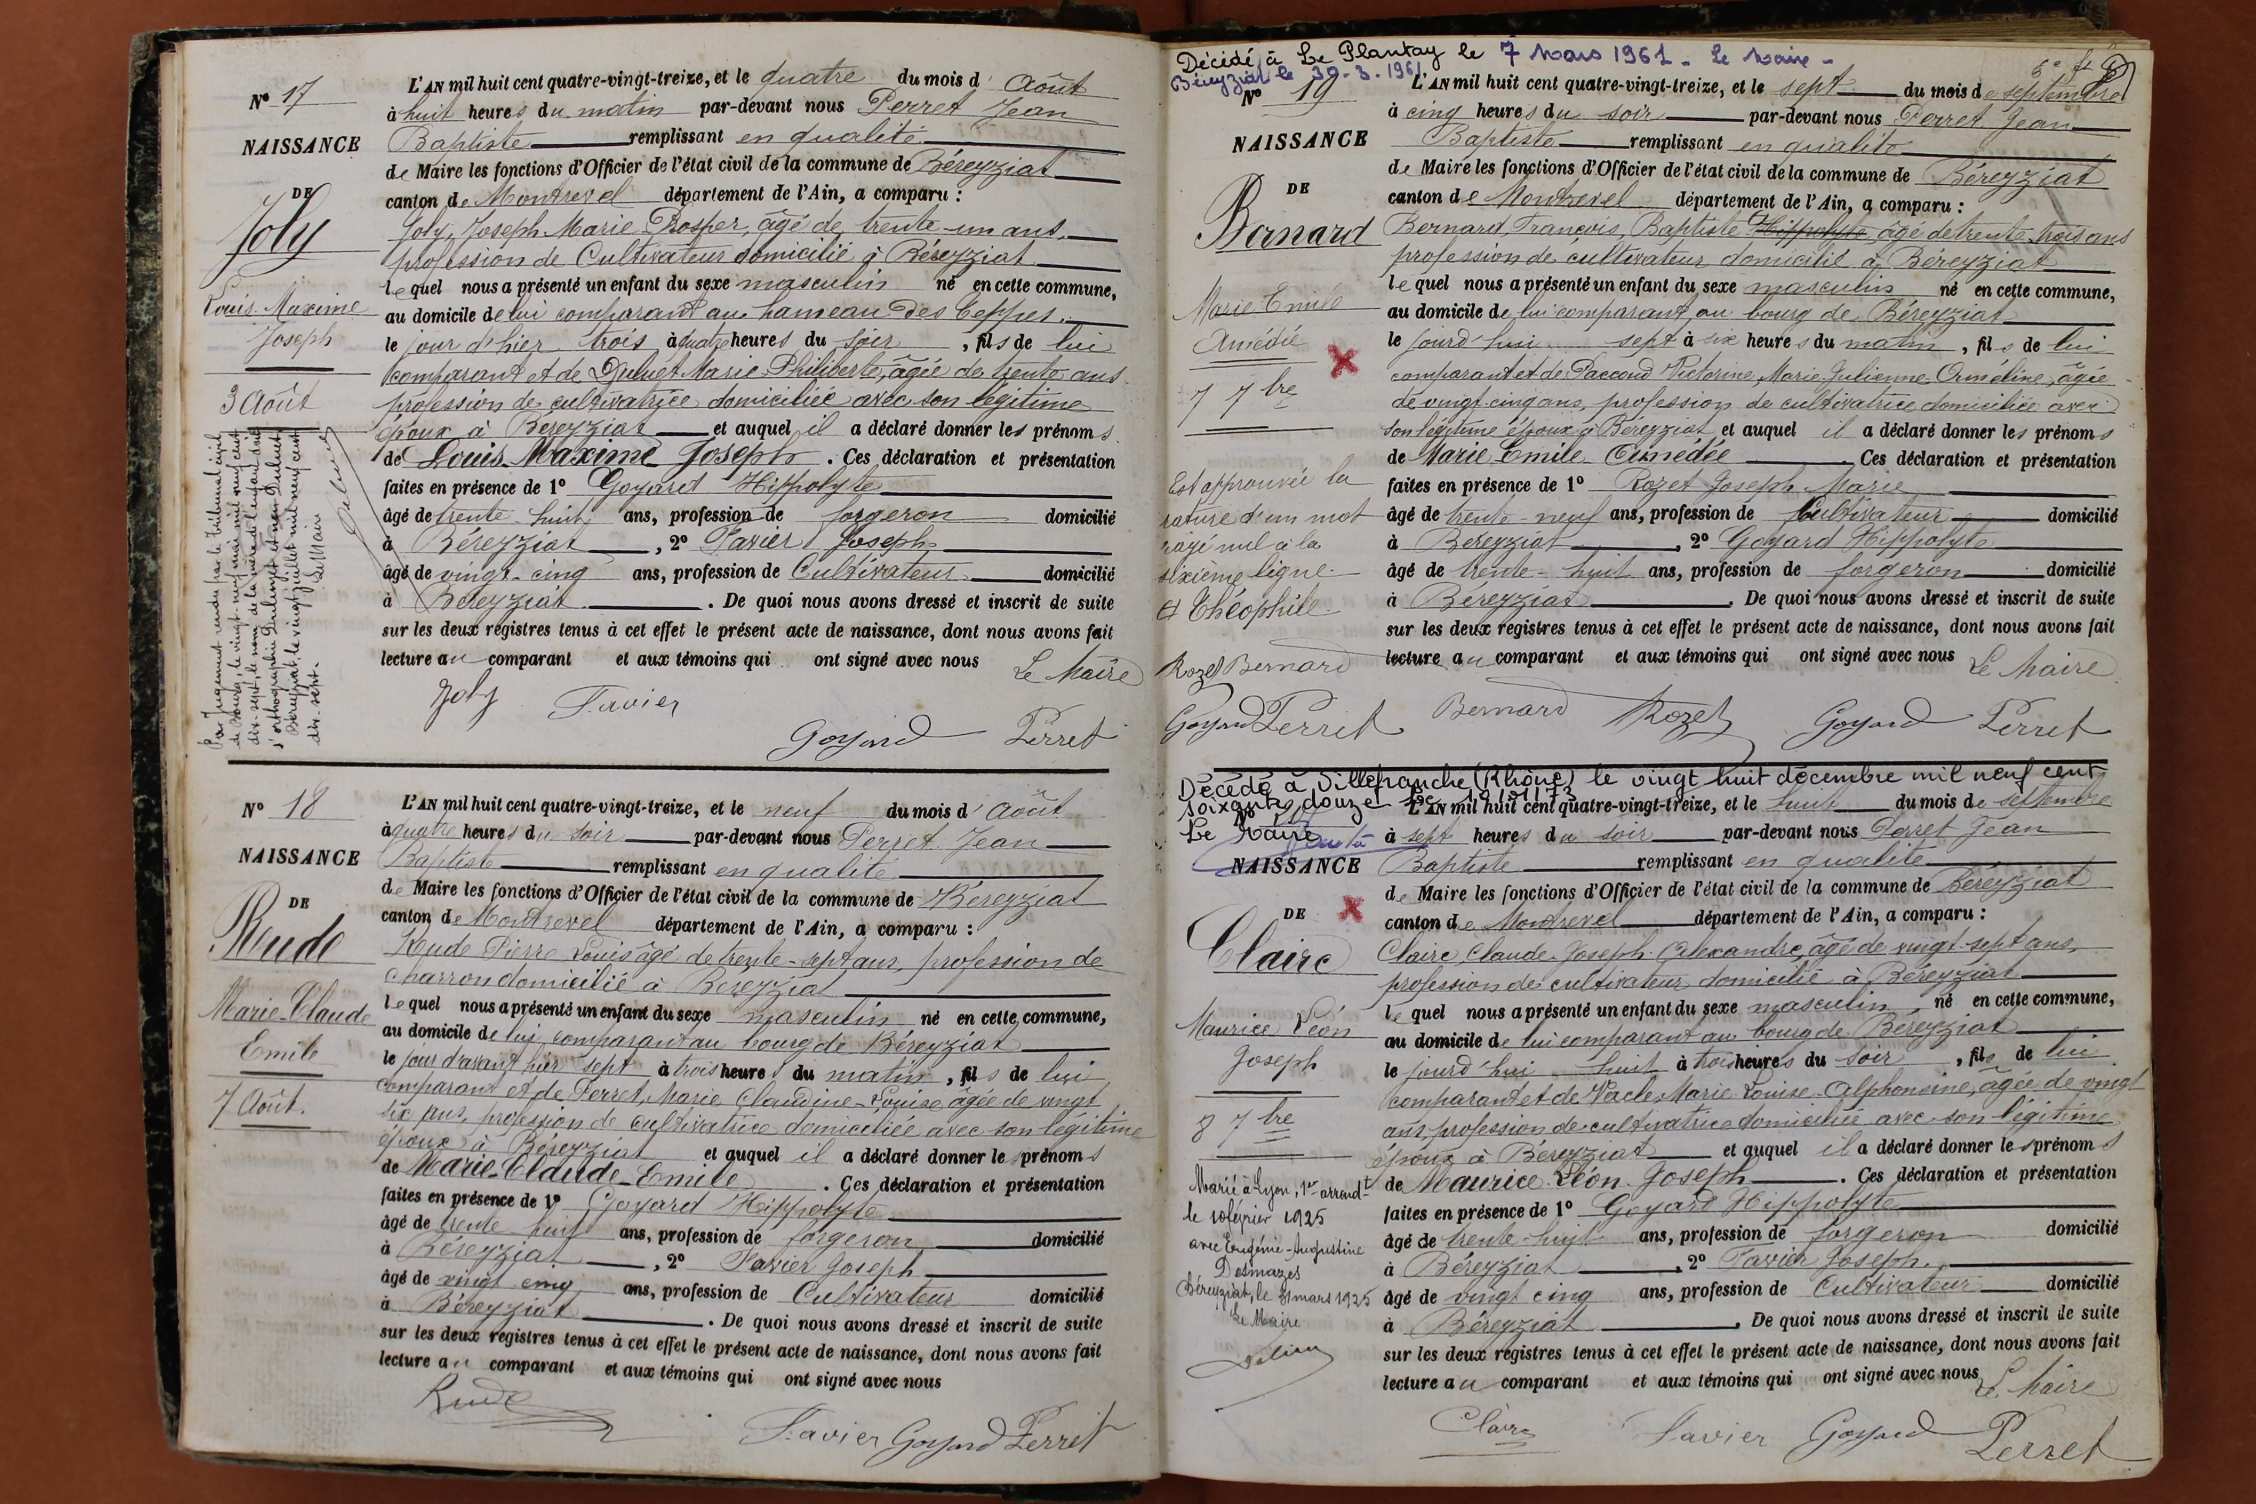 N° 17
NAISSANCE
DE
Joly
Louis Maxime
Joseph
3 Août
Par jugement rendu par le tribunal civil
de Bourg, le vingt-neuf mai mil neuf cent
dix-sept, le nom de la mère de l'enfant
s'orthographie et non Dulmet
Béreyziat, le vingt juillet mil neuf cent
dix-sept. Le Maire
L'AN mil huit cent quatre-vingt-treize, et le quatre du mois d'Août
à huit heures du matin par-devant nous Perret Jean
Baptiste remplissant en qualité
de Maire les fonctions d'Officier de l'état civil de la commune de Béreyziat
canton de Montrevel département de l'Ain, a comparu :
Joly, Joseph Marie Prosper, âgé de trente-un ans,
profession de Cultivateur domicilié à Béreyziat
lequel nous a présenté un enfant du sexe masculin né en cette commune,
au domicile de lui comparant au hameau des Teppes
le jour d'hier trois à quatre heures du soir, fils de lui
comparant et de Marie Philiberte, âgée de trente ans
profession de cultivatrice domiciliée avec son légitime
époux à Béreyziat et auquel il a déclaré donner les prénoms
de Louis Maxime Joseph. Ces déclaration et présentation
faites en présence de 1° Goyard Hippolyte
âgé de trente-huit ans, profession de forgeron domicilié
à Béreyziat, 2° Favier Joseph
âgé de vingt-cinq ans, profession de Cultivateur domicilié
à Béreyziat. De quoi nous avons dressé et inscrit de suite
sur les deux registres tenus à cet effet le présent acte de naissance, dont nous avons fait
lecture au comparant et aux témoins qui ont signé avec nous Le Maire
Joly Favier
Goyard Perret
N° 18
NAISSANCE
DE
Rude
Marie-Claude
Emile
7 Août.
L'AN mil huit cent quatre-vingt-treize, et le neuf du mois d'Août
à quatre heures du soir par-devant nous Perret Jean
Baptiste remplissant en qualité
de Maire les fonctions d'Officier de l'état civil de la commune de Béreyziat
canton de Montrevel département de l'Ain, a comparu :
Rude Pierre Louis âgé de trente-sept ans, profession de
charron domicilié à Béreyziat
lequel nous a présenté un enfant du sexe masculin né en cette commune,
au domicile de lui comparant au bourg de Béreyziat
le jour d'avant hier sept à trois heures du matin, fils de lui
comparant et de Perret, Marie Claudine-Louise âgée de vingt
six ans, profession de cultivatrice domiciliée avec son légitime
époux à Béreyziat et auquel il a déclaré donner les prénoms
de Marie-Claude-Emile. Ces déclaration et présentation
faites en présence de 1° Goyard Hippolyte
âgé de trente huit ans, profession de forgeron domicilié
à Béreyziat, 2° Favier Joseph
âgé de vingt cinq ans, profession de Cultivateur domicilié
à Béreyziat. De quoi nous avons dressé et inscrit de suite
sur les deux registres tenus à cet effet le présent acte de naissance, dont nous avons fait
lecture au comparant et aux témoins qui ont signé avec nous
Rude
Favier Goyard Perret
Décédé à Le Plantay le 7 Mars 1961 - Le Maire -
Béreyziat le 30-3-1961
N° 19
NAISSANCE
DE
Bernard
Marie Emile
Amédée
7 7bre
Est approuvée la
rature d'un mot
rayé nul à la
sixième ligne.
et Théophile.
Rozet Bernard
Goyard Perret
L'AN mil huit cent quatre-vingt-treize, et le sept du mois de septembre
à cinq heures du soir par-devant nous Perret Jean
Baptiste remplissant en qualité
de Maire les fonctions d'Officier de l'état civil de la commune de Béreyziat
canton de Montrevel département de l'Ain, a comparu :
Bernard François, Baptiste Hippolyte âgé de trente-trois ans
profession de cultivateur domicilié à Béreyziat
lequel nous a présenté un enfant du sexe masculin né en cette commune,
au domicile de lui comparant au bourg de Béreyziat
le jourd'hui sept à six heures du matin, fils de lui
comparant et de Paccoud Victorine, Marie Julienne Orméline, âgée
de vingt-cinq ans, profession de cultivatrice domiciliée avec
son légitime époux à Béreyziat et auquel il a déclaré donner les prénoms
de Marie Emile Amédée. Ces déclaration et présentation
faites en présence de 1° Rozet Joseph Marie
âgé de trente-neuf ans, profession de Cultivateur domicilié
à Béreyziat, 2° Goyard Hippolyte
âgé de trente-huit ans, profession de forgeron domicilié
à Béreyziat. De quoi nous avons dressé et inscrit de suite
sur les deux registres tenus à cet effet le présent acte de naissance, dont nous avons fait
lecture au comparant et aux témoins qui ont signé avec nous Le Maire
Bernard Rozet Goyard Perret
Décédé à Villefranche (Rhône) le vingt huit décembre mil neuf cent
soixante douze
Le Maire
NAISSANCE
DE
Claire
Maurice Léon
Joseph
8 7bre
Marié à Lyon, 1er arrondt
le 10 février 1925
avec Eugénie-Augustine
Desmazes
Béreyziat, le 31 mars 1925
Le Maire
L'AN mil huit cent quatre-vingt-treize, et le huit du mois de septembre
à sept heures du soir par-devant nous Perret Jean
Baptiste remplissant en qualité
de Maire les fonctions d'Officier de l'état civil de la commune de Béreyziat
canton de Montrevel département de l'Ain, a comparu :
Claire, Claude-Joseph-Alexandre, âgé de vingt-sept ans,
profession de cultivateur domicilié à Béreyziat
lequel nous a présenté un enfant du sexe masculin né en cette commune,
au domicile de lui comparant au bourg de Béreyziat
le jourd'hui huit à trois heures du soir, fils de lui
comparant et de Vacle Marie Louise Alphonsine, âgée de vingt
ans, profession de cultivatrice domiciliée avec son légitime
époux à Béreyziat et auquel il a déclaré donner les prénoms
de Maurice Léon Joseph. Ces déclaration et présentation
faites en présence de 1° Goyard Hippolyte
âgé de trente-huit ans, profession de forgeron domicilié
à Béreyziat, 2° Favier Joseph.
âgé de vingt cinq ans, profession de Cultivateur domicilié
à Béreyziat. De quoi nous avons dressé et inscrit de suite
sur les deux registres tenus à cet effet le présent acte de naissance, dont nous avons fait
lecture au comparant et aux témoins qui ont signé avec nous Le Maire
Claire Favier Goyard Perret